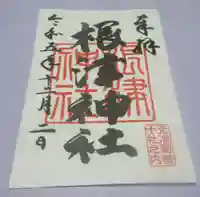 奉拝
根津神社
令和五年十二月二日
根津
神社